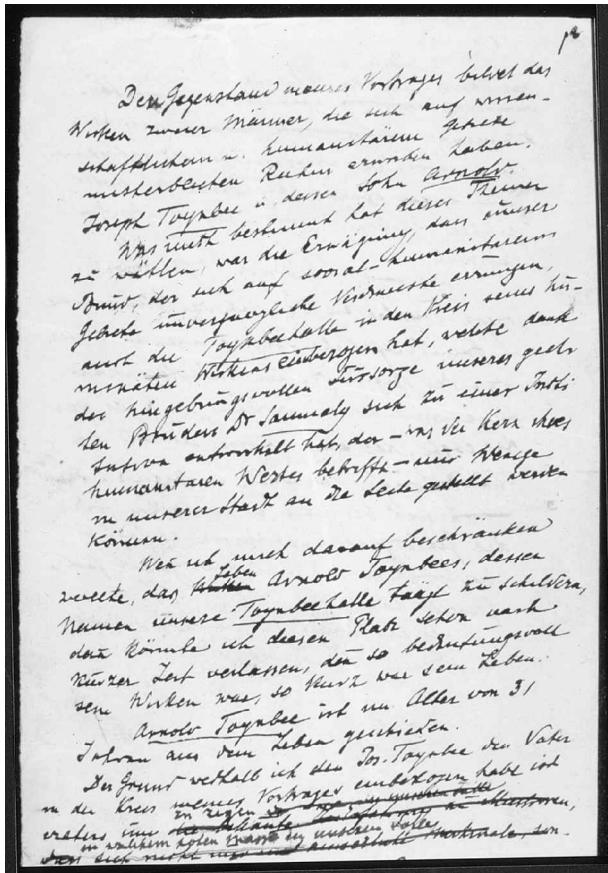 Den Gegenstand meines Vortrages bildet das
Wirken zweier Männer, die sich auf wissen-
schaftlichem u. humanitärem Gebiete
unsterblichen Ruhm erworben haben.
Joseph Toynbee u. dessen Sohn Arnold.
Was mich bestimmt hat dieses Thema
zu wählen, war die Erwägung, dass unser
Bund, der sich auf social-humanitärem
Gebiete unvergängliche Verdienste errungen,
auch die Toynbeehalle in den Kreis seines hu-
manitären Wirkens einbezogen hat, welche dank
der hingebungsvollen Fürsorge unseres geehr
ten Bruders Dr Samuely sich zu einer Insti
tution entwickelt hat, der – was den Kern ihres
humanitären Wertes betrifft – nur Wenige
in unserer Stadt an die Seite gestellt werden
können.
Wen ich mich darauf beschränken
wollte, das Leben Arnold Toynbees, dessen
Namen unsere Toynbeehalle trägt zu schildern,
dan könnte ich diesen Platz schon nach
kurzer Zeit verlassen, den so bedeutungsvoll
sein Wirken war, so kurz war sein Leben.
Arnold Toynbee ist im Alter von 31
Jahren aus dem Leben geschieden.
Der Grund weshalb ich den Jos. Toynbee den Vater
in den Kreis meines Vortrages einbezogen habe ist
erstens um zu zeigen
in welchem hohen unserem
sich nicht